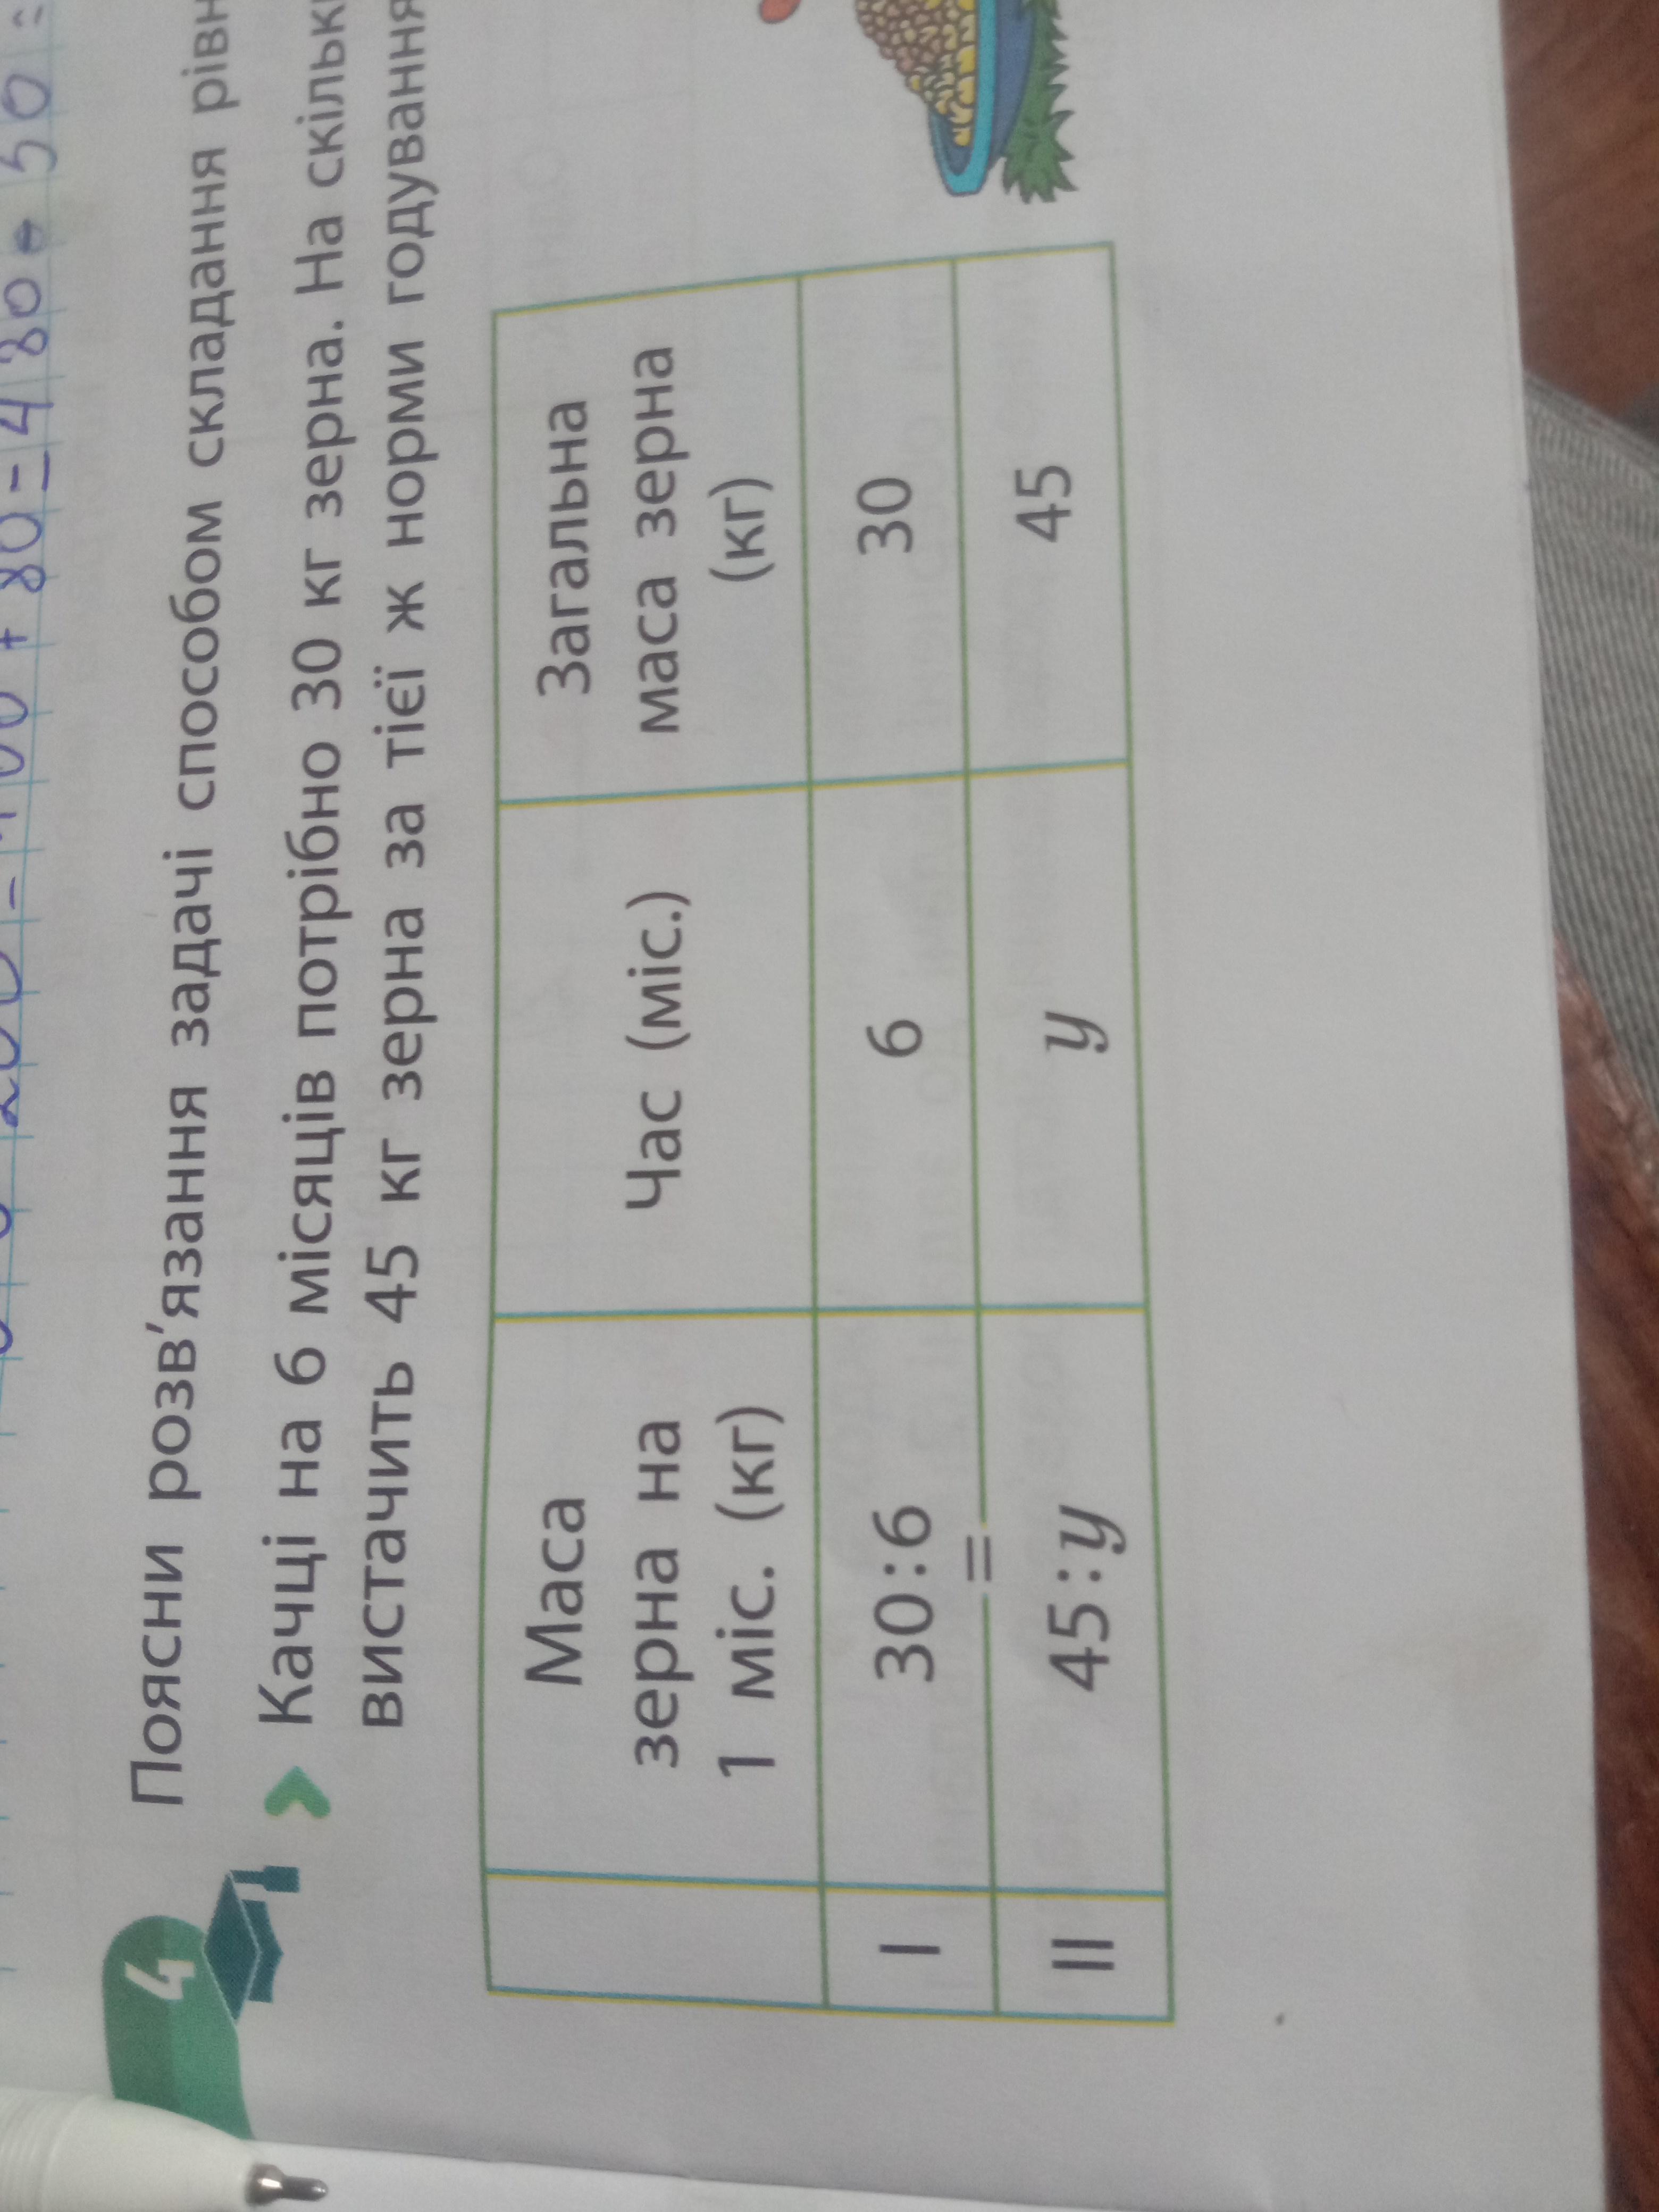 80 = 480
50 =
4
Поясни розв'язання задачі способом складання
Качці на 6 місяців потрібно 30 кг зерна. На
вистачить 45 кг зерна за тієї ж норми годування
Маса зерна на 1 міс. (кг)
Час (міс.)
Загальна маса зерна (кг)
I
30:6
6
30
=
II
45:y
y
45